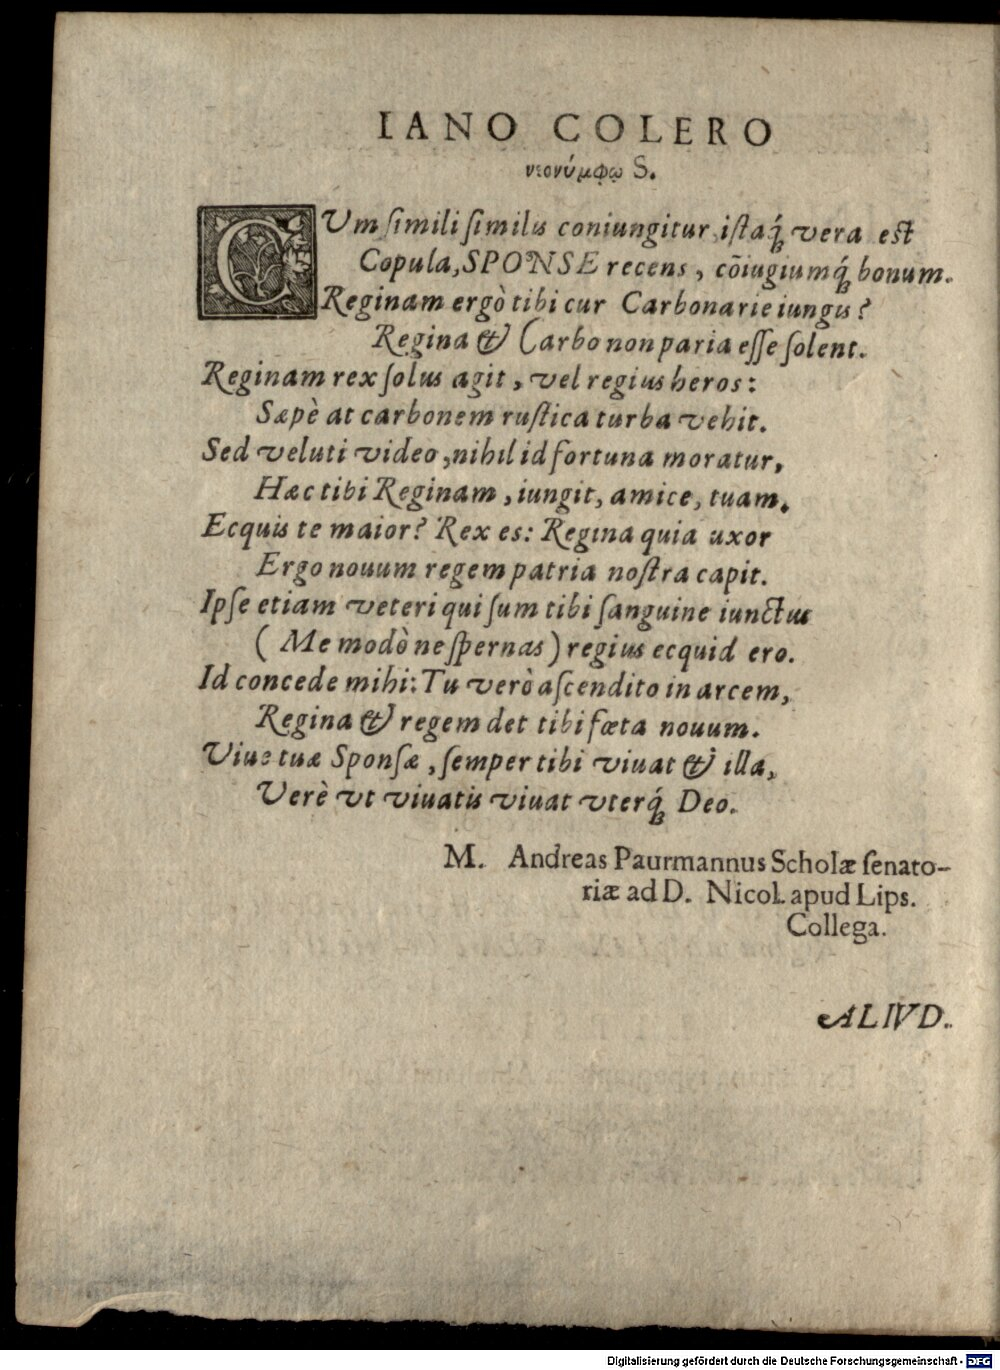 IANO COLERO
νεονύμφῳ S.
CVm ſimili ſimilis coniungitur, iſtaq́ꝫ vera eſt
Copula, SPONSE recens, cõiugiumq́ꝫ bonum.
Reginam ergò tibi cur Carbonarie iungis?
Regina & Carbo non paria eſſe ſolent.
Reginam rex ſolus agit, vel regius heros:
Sæpè at carbonem ruſtica turba vehit.
Sed veluti video, nihil id fortuna moratur,
Hæc tibi Reginam, iungit, amice, tuam.
Ecquis te maior? Rex es: Regina quia uxor
Ergo nouum regem patria noſtra capit.
Ipſe etiam veteri qui ſum tibi ſanguine iunctus
( Me modò ne ſpernas ) regius ecquid ero.
Id concede mihi: Tu verò aſcendito in arcem,
Regina & regem det tibi fœta nouum.
Viue tuæ Sponſæ, ſemper tibi viuat & illa,
Verè vt viuatis viuat vterq́ꝫ Deo.
M. Andreas Paurmannus Scholæ ſenato-
riæ ad D. Nicol. apud Lips.
Collega.
ALIVD.
Digitalisierung gefördert durch die Deutsche Forschungsgemeinschaft - DFG